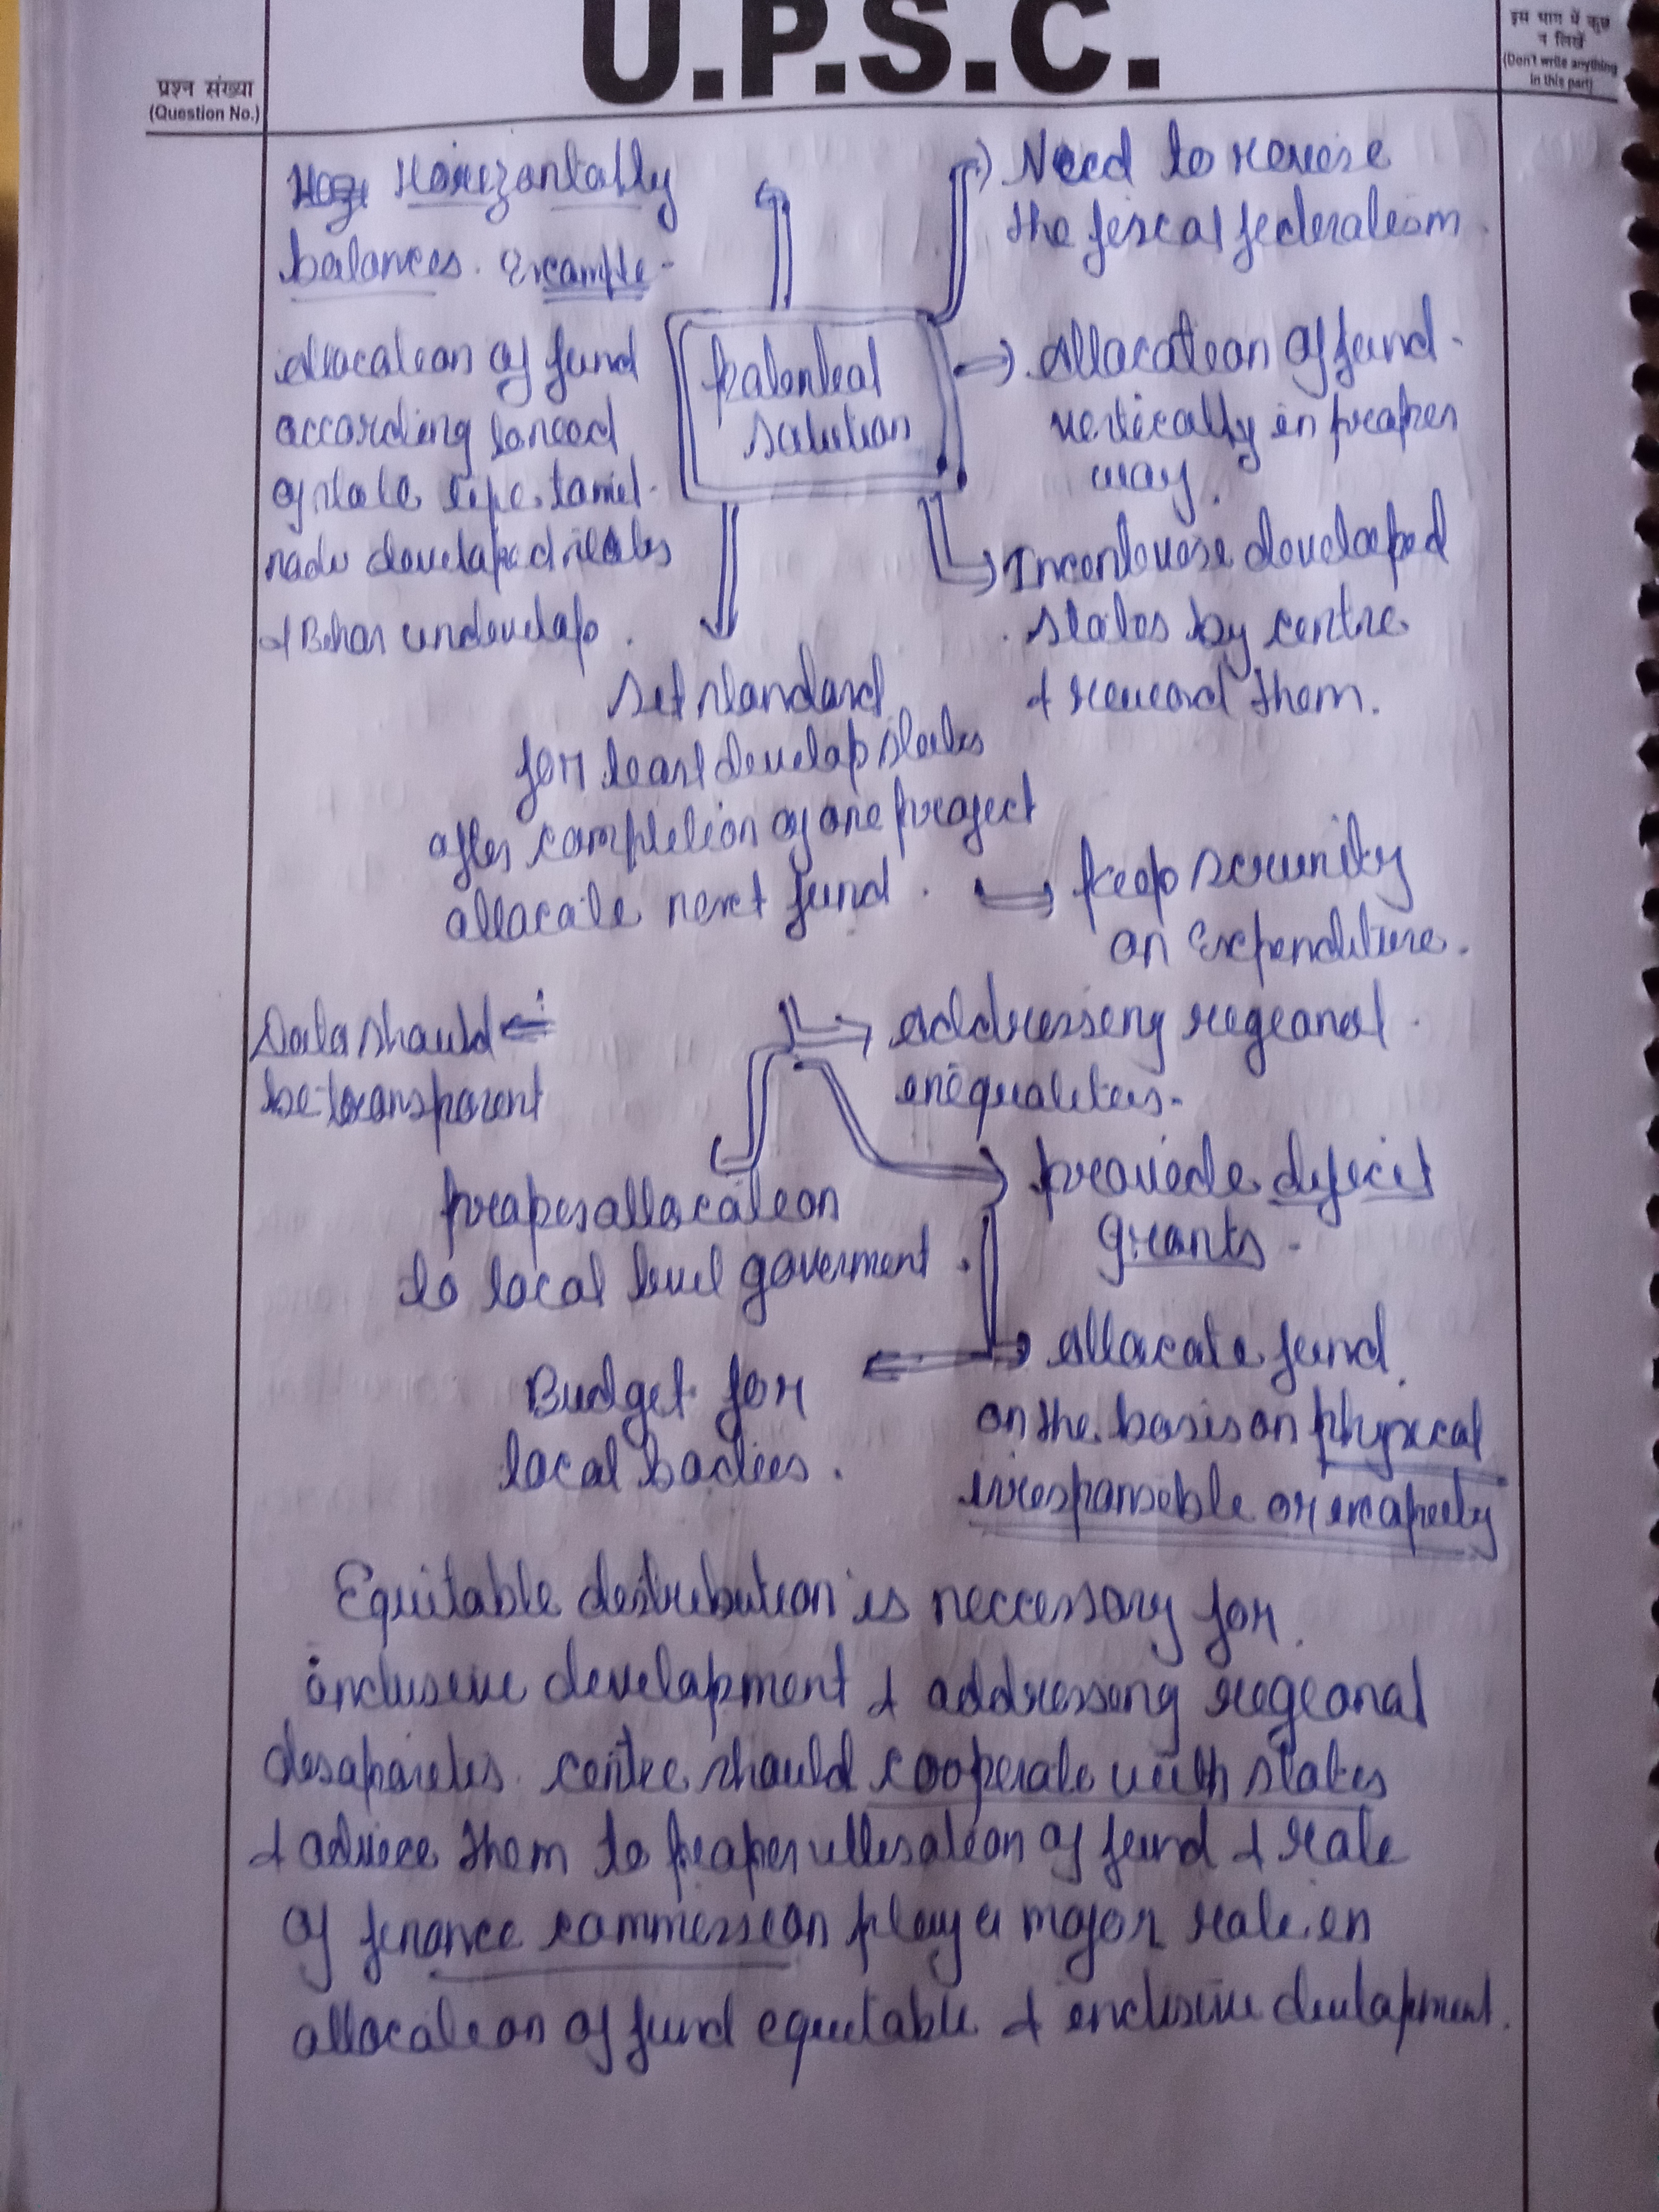 U.P.S.C.
प्रश्न संख्या
(Question No.)
इस भाग में कुछ
न लिखें
(Don't write anything
in this part)
Horizontally
balances. Example-
allocation of fund
according to need
of state like tamil-
nadu developed states
& Bihar undevelop.
Potential
solution
Need to revise
the fiscal federalism.
Allocation of fund-
vertically in proper
way.
developed
states by centre
& reward them.
Set standard
for least develop states
after completion of one project
allocate next fund.
keep scrunity
on Expenditure.
Data should
be transparent
Addressing regional
inequalities.
proper allocation
to local level goverment.
provide deficit
grants.
Allocate fund
on the basis on physical
irresponsible or
Budget for
local bodies.
Equitable distribution is neccessary for
inclusive development & addressing regional
disaparities. centre should cooperate with states
& advice them to proper utilisation of fund & role
of finance commission play a major role in
allocation of fund equitable & inclusive development.